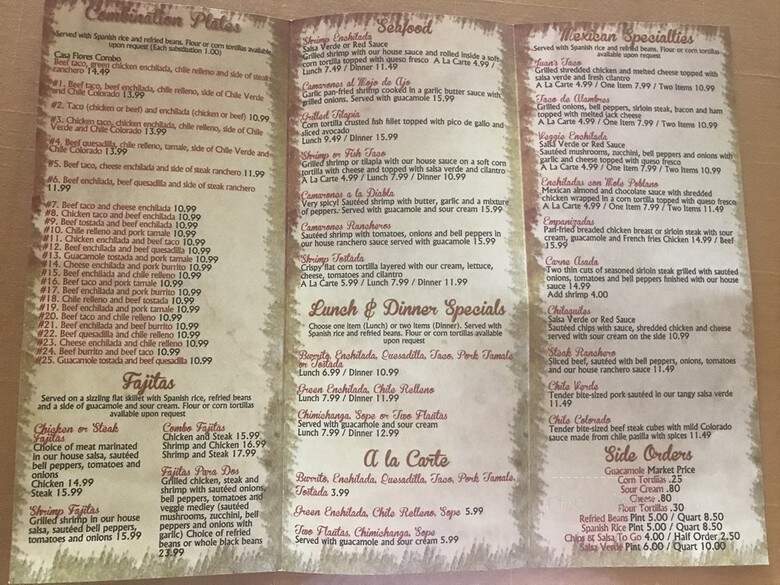 Combination Plates
Served with Spanish rice and refried beans. Flour or corn tortillas available
upon request (Each substitution 1.00)
Casa Flores Combo
Beef taco, green chicken enchilada, chile relleno and side of steak
ranchero 14.49
#1. Beef taco, beef enchilada, chile relleno, side of Chile Verde
and Chile Colorado 13.99
#2. Taco (chicken or beef) and enchilada (chicken or beef) 10.99
#3. Chicken taco, chicken enchilada, chile relleno, side of Chile
Verde and Chile Colorado 13.99
#4. Beef quesadilla, chile relleno, tamale, side of Chile Verde and
Chile Colorado 13.99
#5. Beef taco, cheese enchilada and side of steak ranchero 11.99
#6. Beef enchilada, beef quesadilla and side of steak ranchero
11.99
#7. Beef taco and cheese enchilada 10.99
#8. Chicken taco and beef enchilada 10.99
#9. Beef tostada and beef enchilada 10.99
#10. Chile relleno and pork tamale 10.99
#11. Chicken enchilada and beef taco 10.99
#12. Beef enchilada and beef quesadilla 10.99
#13. Guacamole tostada and pork tamale 10.99
#14. Cheese enchilada and pork burrito 10.99
#15. Beef enchilada and chile relleno 10.99
#16. Beef taco and pork tamale 10.99
#17. Beef enchilada and pork burrito 10.99
#18. Chile relleno and beef tostada 10.99
#19. Beef enchilada and pork tamale 10.99
#20. Beef taco and chile relleno 10.99
#21. Beef enchilada and beef burrito 10.99
#22. Beef quesadilla and chile relleno 10.99
#23. Cheese enchilada and chile relleno 10.99
#24. Beef burrito and beef taco 10.99
#25. Guacamole tostada and beef quesadilla 10.99
Fajitas
Served on a sizzling flat skillet with Spanish rice, refried beans
and a side of guacamole and sour cream. Flour or corn tortillas
available upon request
Chicken or Steak
Fajitas
Choice of meat marinated
in our house salsa, sautéed
bell peppers, tomatoes and
onions
Chicken 14.99
Steak 15.99
Shrimp Fajitas
Grilled shrimp in our house
salsa, sautéed bell peppers,
tomatoes and onions 15.99
Combo Fajitas
Chicken and Steak 15.99
Shrimp and Chicken 16.99
Shrimp and Steak 17.99
Fajitas Para Dos
Grilled chicken, steak and
shrimp with sautéed onions,
bell peppers, tomatoes and
veggie medley (sautéed
mushrooms, zucchini, bell
peppers and onions with
garlic) Choice of refried
beans or whole black beans
23.99
Seafood
Shrimp Enchilada
Salsa Verde or Red Sauce
Grilled shrimp with our house sauce and rolled inside a soft
corn tortilla topped with queso fresco A La Carte 4.99 /
Lunch 7.49 / Dinner 11.49
Camarones al Mojo de Ajo
Garlic pan-fried shrimp cooked in a garlic butter sauce with
grilled onions. Served with guacamole 15.99
Grilled Tilapia
Corn tortilla crusted fish fillet topped with pico de gallo and
sliced avocado
Lunch 9.49 / Dinner 15.99
Shrimp or Fish Taco
Grilled shrimp or tilapia with our house sauce on a soft corn
tortilla with cheese and topped with salsa verde and cilantro
A La Carte 4.99 / Lunch 7.99 / Dinner 10.99
Camarones a la Diabla
Very spicy! Sautéed shrimp with butter, garlic and a mixture
of peppers. Served with guacamole and sour cream 15.99
Camarones Rancheros
Sautéed shrimp with tomatoes, onions and bell peppers in
our house ranchero sauce served with guacamole 15.99
Shrimp Tostada
Crispy flat corn tortilla layered with our cream, lettuce,
cheese, tomatoes and cilantro
A La Carte 5.99 / Lunch 7.99 / Dinner 11.99
Lunch & Dinner Specials
Choose one item (Lunch) or two items (Dinner). Served with
Spanish rice and refried beans. Flour or corn tortillas available
upon request
Burrito, Enchilada, Quesadilla, Taco, Pork Tamale
or Tostada
Lunch 6.99 / Dinner 10.99
Green Enchilada, Chile Relleno
Lunch 7.99 / Dinner 11.99
Chimichanga, Sope or Two Flautas
Served with guacamole and sour cream
Lunch 7.99 / Dinner 12.99
A la Carte
Burrito, Enchilada, Quesadilla, Taco, Pork Tamale,
Tostada 3.99
Green Enchilada, Chile Relleno, Sope 5.99
Two Flautas, Chimichanga, Sope
Served with guacamole and sour cream 5.99
Mexican Specialties
Served with Spanish rice and refried beans. Flour or corn tortillas
available upon request
Juan's Taco
Grilled shredded chicken and melted cheese topped with
salsa verde and fresh cilantro
A La Carte 4.99 / One Item 7.99 / Two Items 10.99
Taco de Alambres
Grilled onions, bell peppers, sirloin steak, bacon and ham
topped with melted jack cheese
A La Carte 4.99 / One Item 7.99 / Two Items 10.99
Veggie Enchilada
Salsa Verde or Red Sauce
Sautéed mushrooms, zucchini, bell peppers and onions with
garlic and cheese topped with queso fresco
A La Carte 4.99 / One Item 7.99 / Two Items 10.99
Enchiladas con Mole Poblano
Mexican almond and chocolate sauce with shredded
chicken wrapped in a corn tortilla topped with queso fresco
A La Carte 4.99 / One Item 7.99 / Two Items 11.49
Empanizadas
Pan-fried breaded chicken breast or sirloin steak with sour
cream, guacamole and French fries Chicken 14.99 / Beef
15.99
Carne Asada
Two thin cuts of seasoned sirloin steak grilled with sautéed
onions, tomatoes and bell peppers finished with our house
sauce 14.99
Add shrimp 4.00
Chilaquiles
Salsa Verde or Red Sauce
Sautéed chips with sauce, shredded chicken and cheese
served with sour cream on the side 10.99
Steak Ranchero
Sliced beef, sautéed with bell peppers, onions, tomatoes
and our house ranchero sauce 11.49
Chile Verde
Tender bite-sized pork sautéed in our tangy salsa verde
11.49
Chile Colorado
Tender bite-sized beef steak cubes with mild Colorado
sauce made from chile pasilla with spices 11.49
Side Orders
Guacamole Market Price
Corn Tortillas .25
Sour Cream .80
Cheese .80
Flour Tortillas .30
Refried Beans Pint 5.00 / Quart 8.50
Spanish Rice Pint 5.00 / Quart 8.50
Chips & Salsa To Go 4.00 / Half Order 2.50
Salsa Verde Pint 6.00 / Quart 10.00